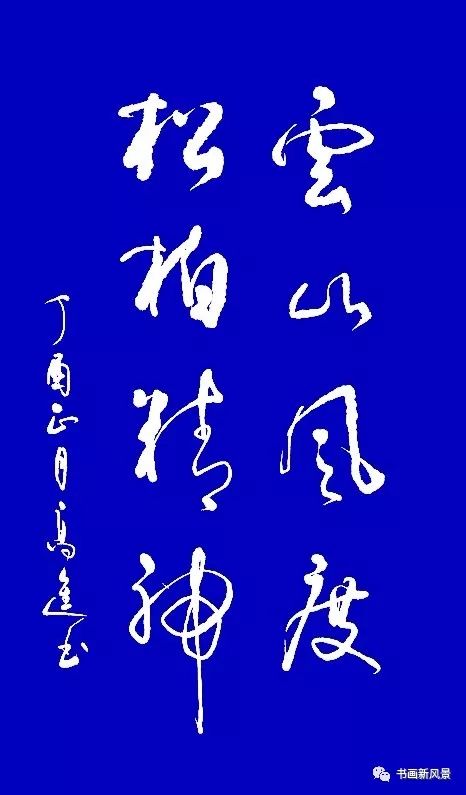 雲山風度
松柏精神
丁酉正月高進书
书画新风景